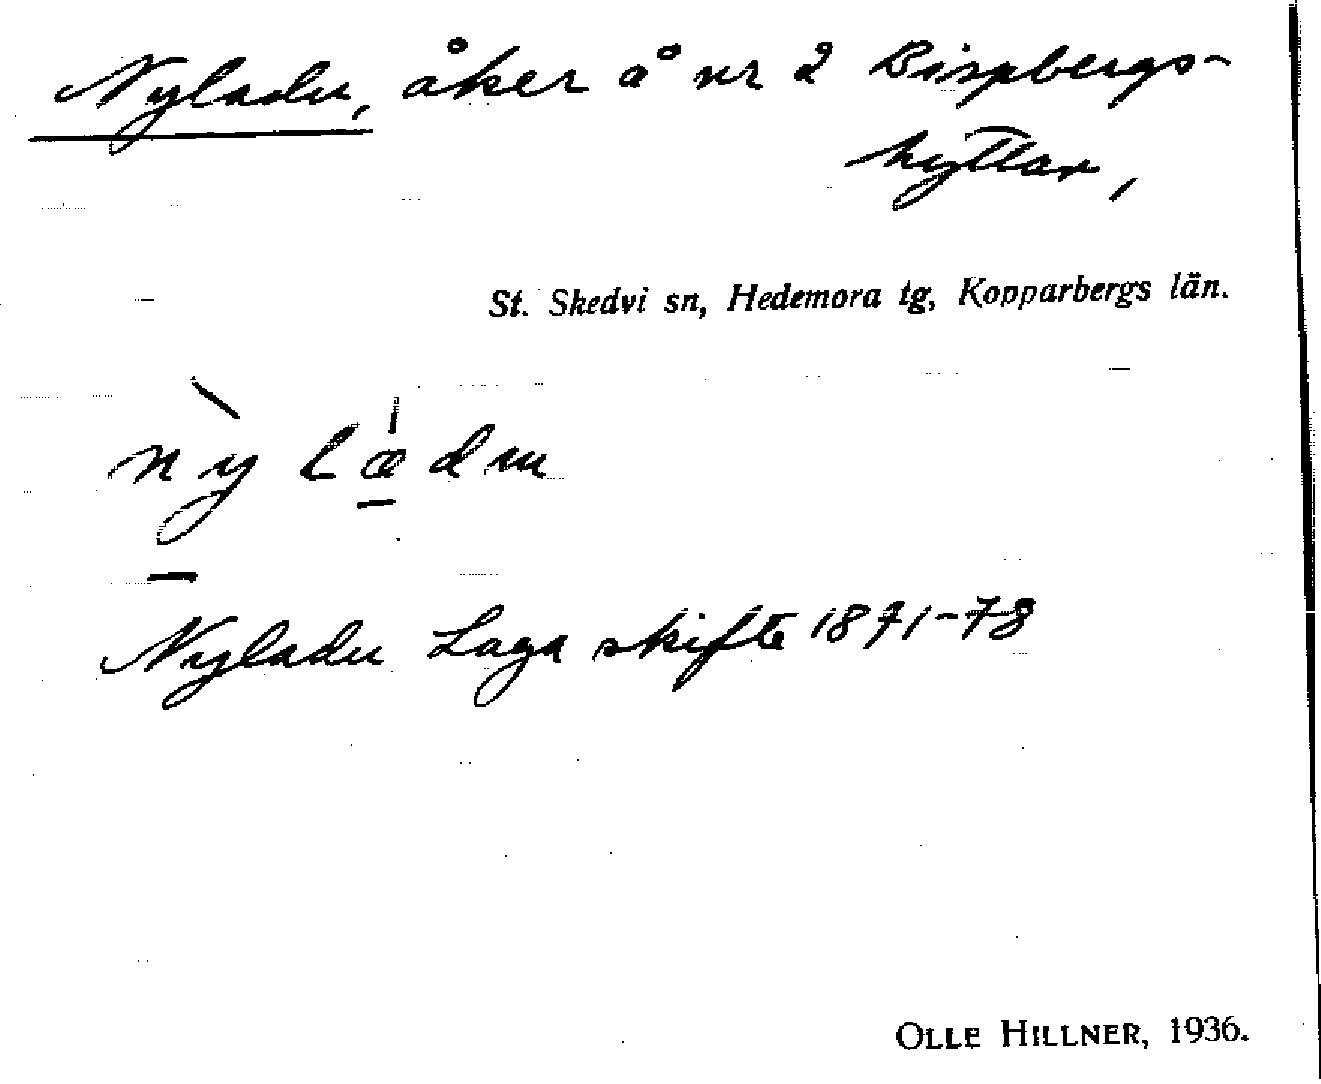 Nyladu, åker å nr 2 Bispbergs-
hyttar,
St. Skedvi sn, Hedemora tg, Kopparbergs län.
Nyladu Laga skifte 1871-78
OLLE HILLNER, 1936.